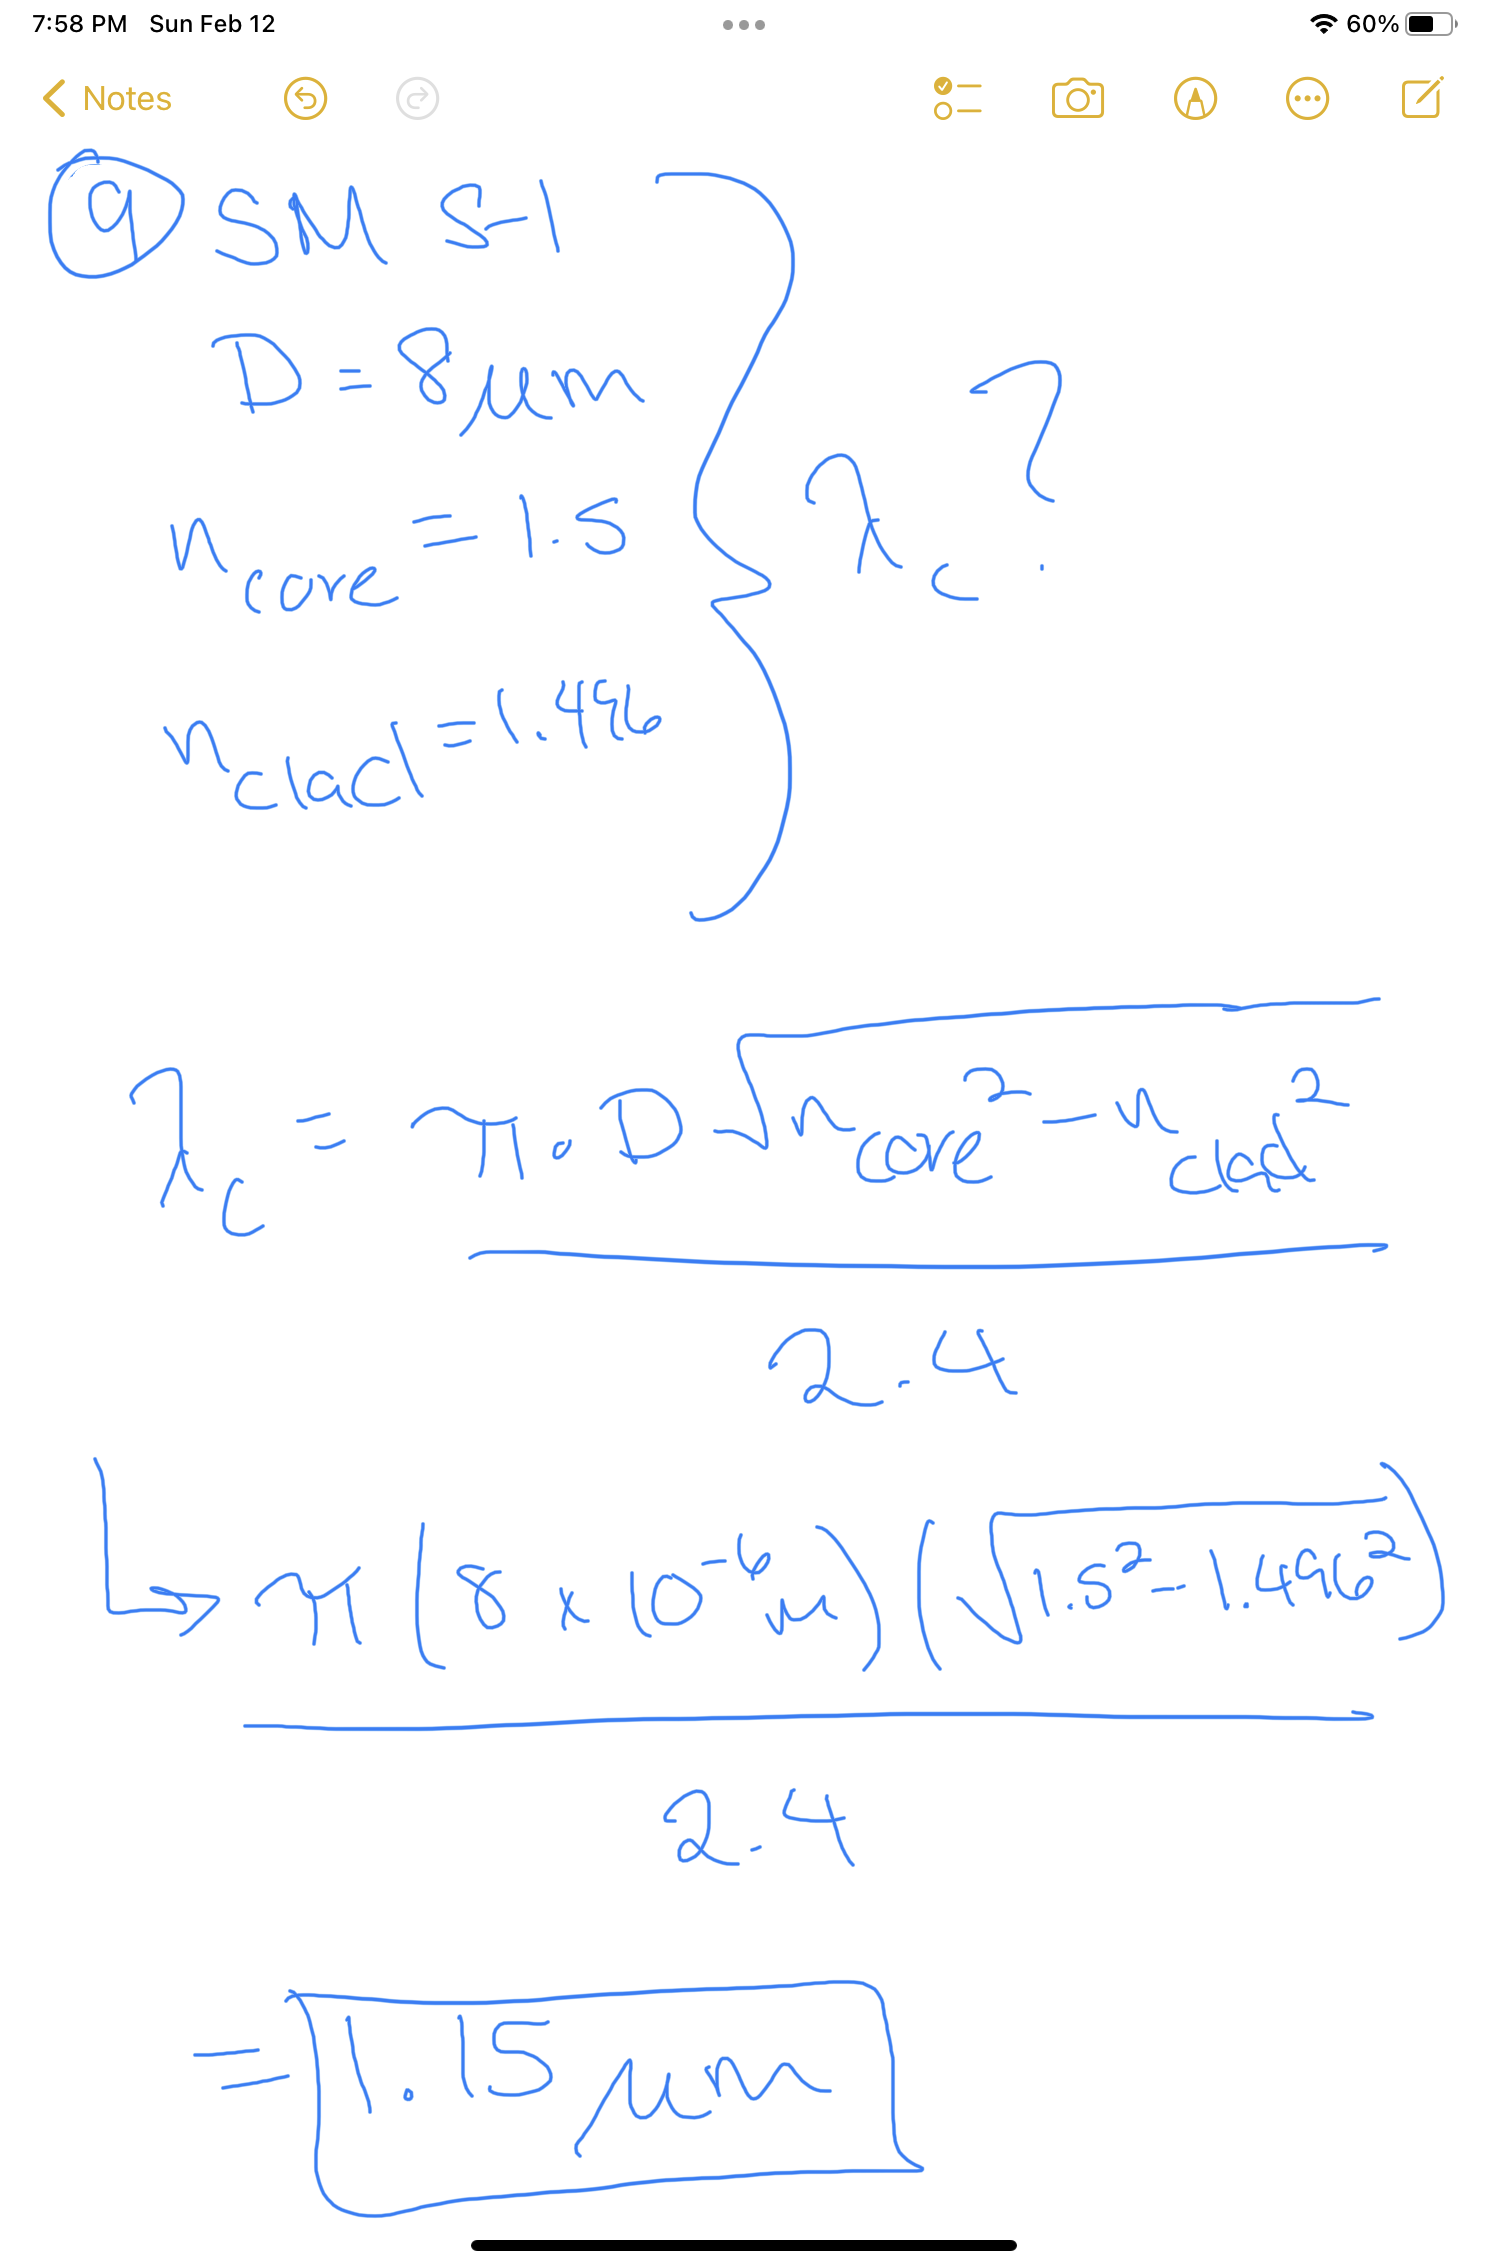 7:58 PM Sun Feb 12
60%
Notes
9 SM S-I
D = 8 μm
n core = 1.5
n clad = 1.496
λc ?
λc = π · D √(n core² - n clad²)
2.4
π (8 x 10⁻⁶ m) (√1.5² - 1.496²)
2.4
= 1.15 μm